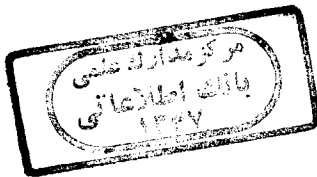 مرکز مدارک علمی
بانک اطلاعاتی
۱۳۴۷